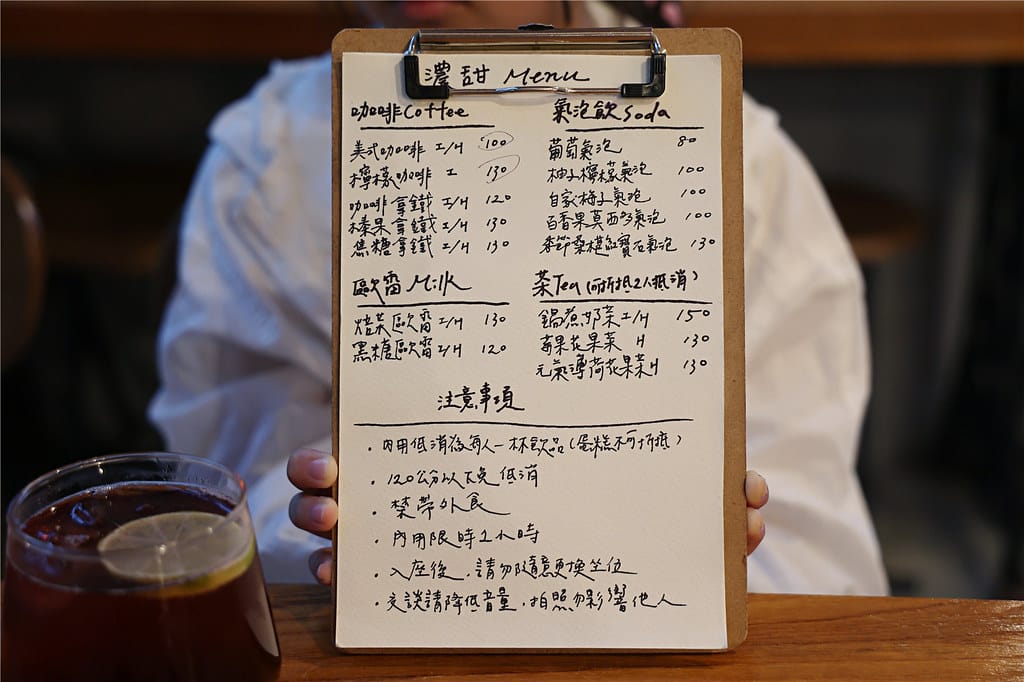 濃甜 Menu
咖啡Coffee
美式咖啡 I/H 100
檸檬咖啡 I 130
咖啡拿鐵 I/H 120
榛果拿鐵 I/H 130
焦糖拿鐵 I/H 130
歐蕾Milk
焙茶歐蕾 I/H 130
黑糖歐蕾 I/H 120
氣泡飲Soda
葡萄氣泡 80
柚子檸檬氣泡 100
自家梅子氣泡 100
百香果莫西多氣泡 100
季節桑椹紅寶石氣泡 130
茶Tea(可折抵2人低消)
鍋煮奶茶 I/H 150
莓果花果茶 H 130
元氣薄荷花果茶 H 130
注意事項
·內用低消為每人一杯飲品(蛋糕不可折抵)
·120公分以下免低消
·禁帶外食
·內用限時2小時
·入座後,請勿隨意更換坐位
·交談請降低音量,拍照勿影響他人